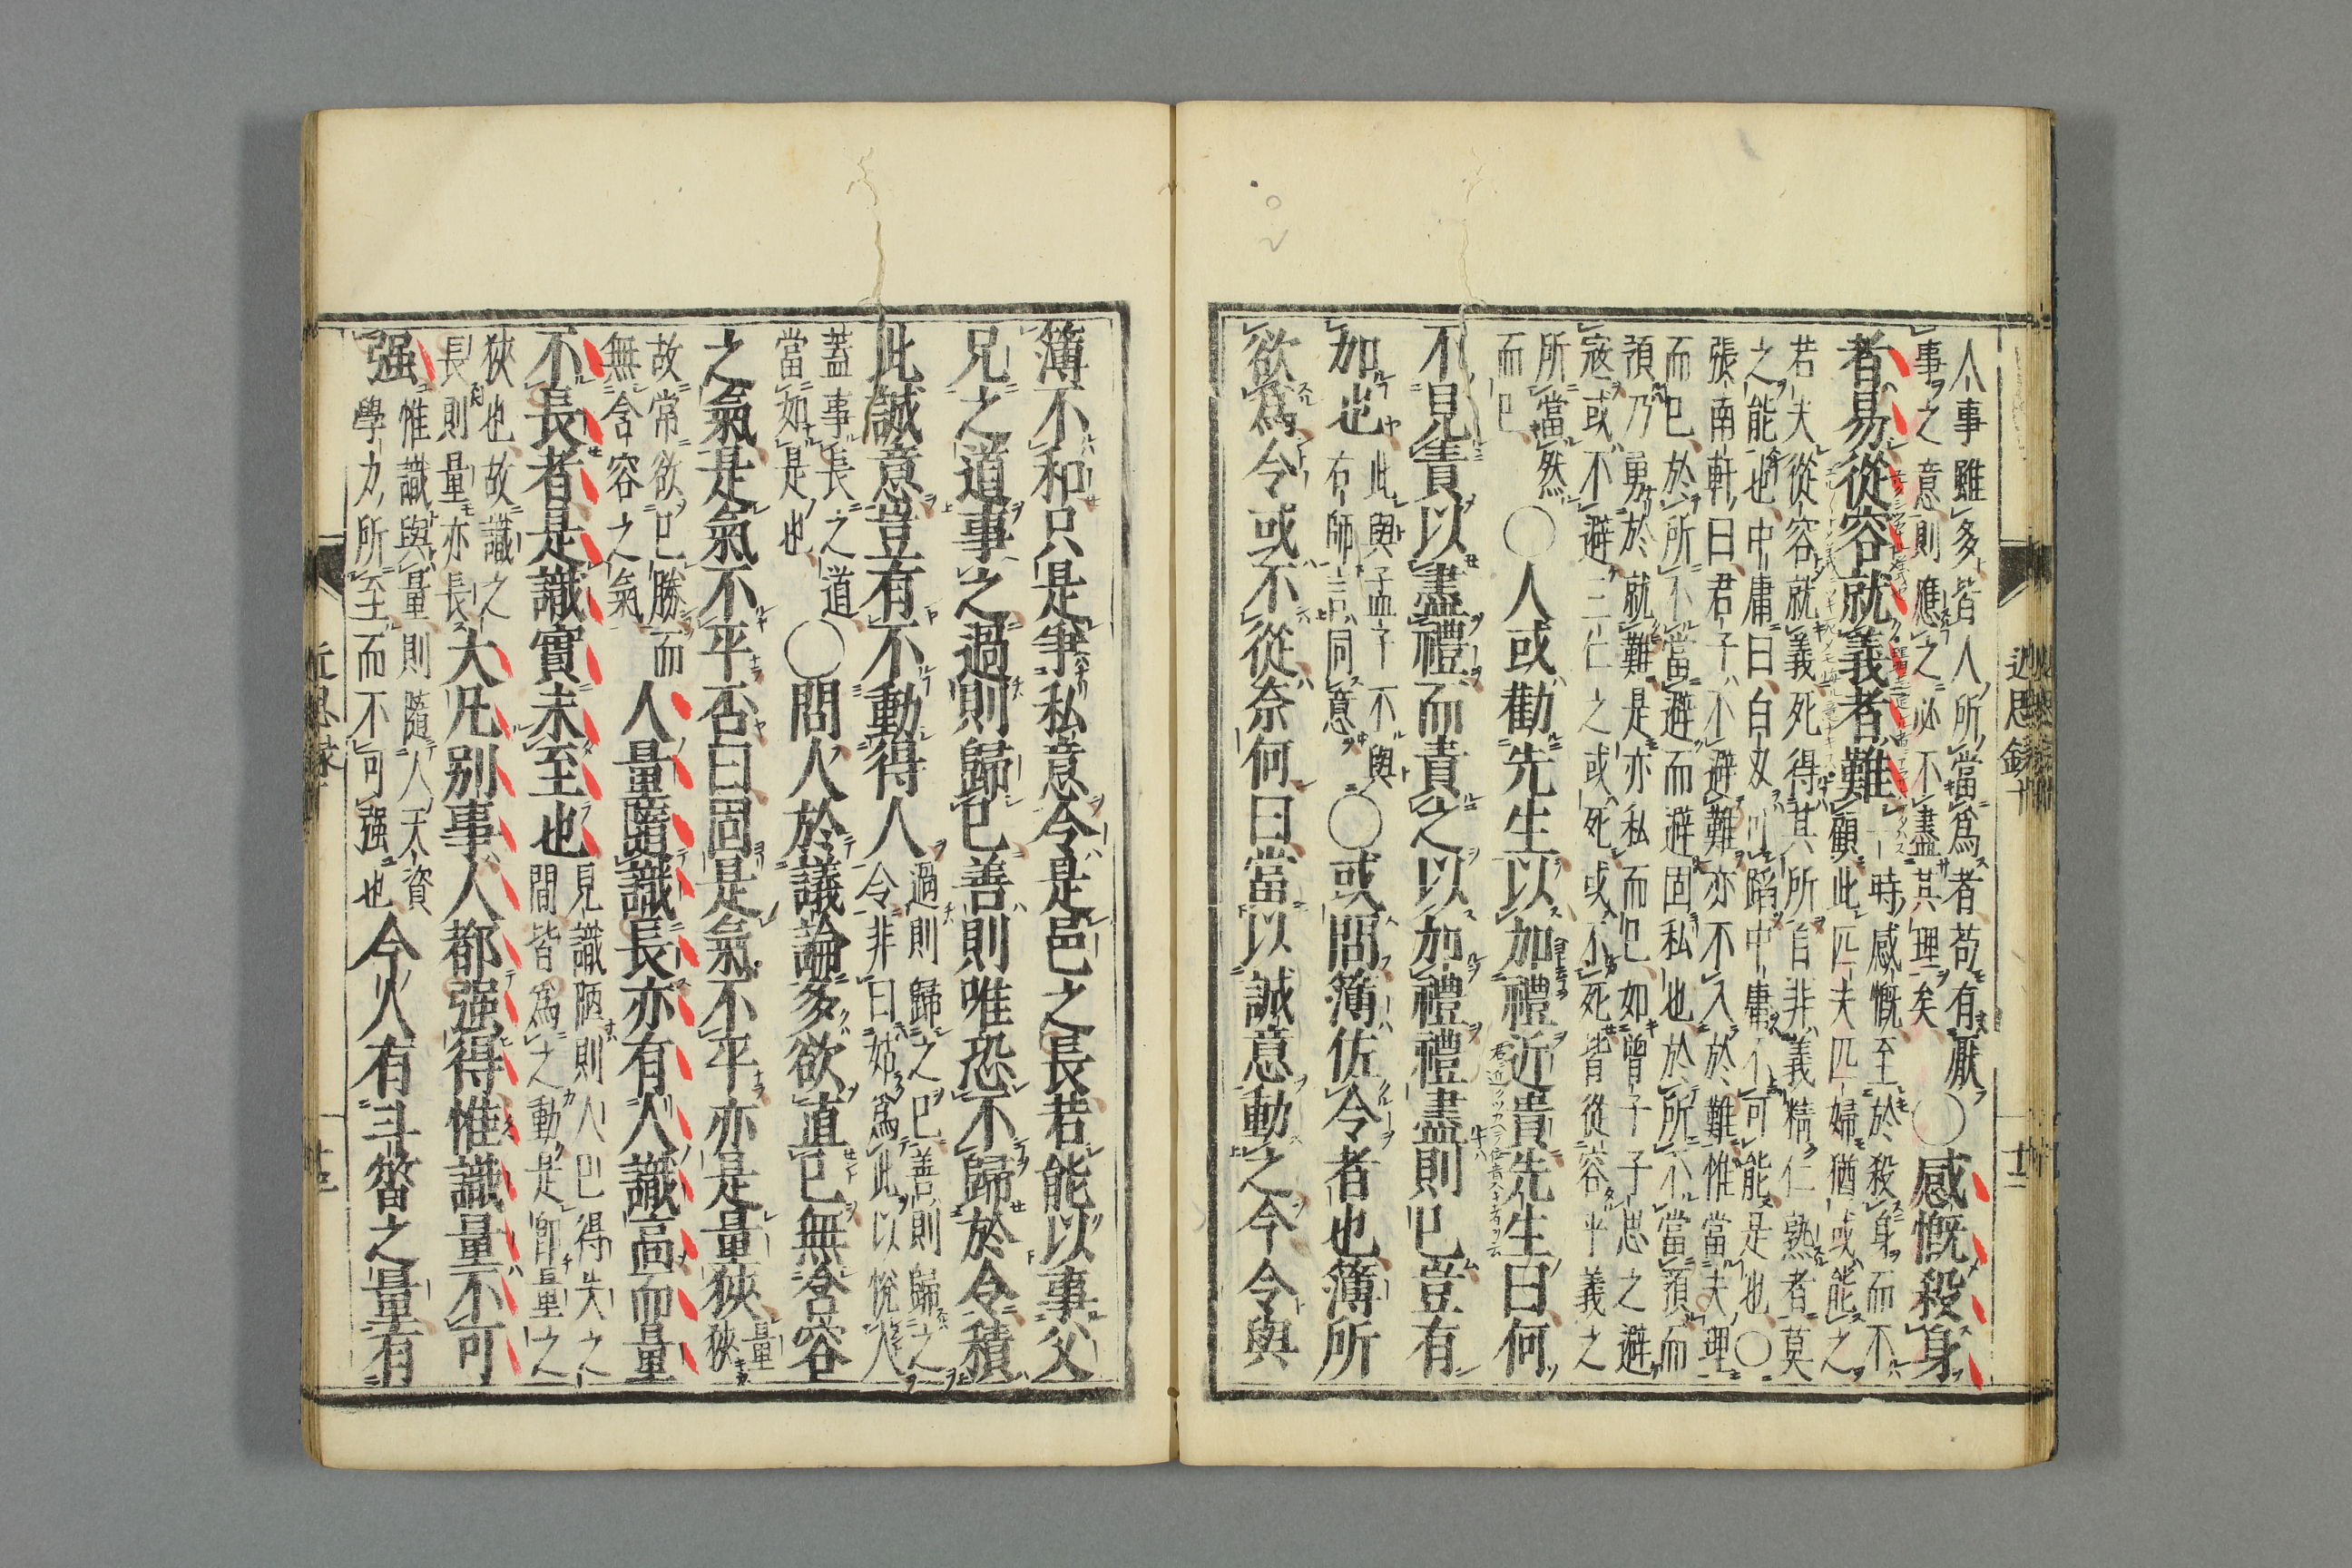 近思錄十 十二
人事雖多皆人所當爲者苟有厭
事之意則應之必不盡其理矣
○感慨殺身
者易從容就義者難
一時感慨至於殺身而不
顧此匹夫匹婦猶或能之
若夫從容就義死得其所自非義精仁熟者莫
之能也中庸曰白刃可蹈中庸不可能是也○
張南軒曰君子不避難亦不入於難惟當夫理
而已於所不當避而避固私也於所不當預而
預乃勇於就難是亦私而已如曾子子思之避
寇或不避三仁之或死或不死皆從容乎義之
所當然
而已
○人或勸先生以加禮近貴先生曰何
不見責以盡禮而責之以加禮禮盡則已豈有
加也
此與孟子不與
右師言同意
○或問簿佐令者也簿所
欲爲令或不從奈何曰當以誠意動之今令與
簿不和只是爭私意令是邑之長若能以事父
兄之道事之過則歸己善則唯恐不歸於令積
此誠意豈有不動得人
過則歸之己善則歸之
令非曰姑爲此以悅人
蓋事長之道
當如是也
○問人於議論多欲直己無含容
之氣是氣不平否曰固是氣不平亦是量狹
量
狹
故常欲己勝而
無含容之氣
人量隨識長亦有人識高而量
不長者是識實未至也
見識陋則人己得失之
間皆爲之動是卽量之
狹也故識之
長則量亦長
大凡別事人都强得惟識量不可
强
惟識與量則隨人天資
學力所至而不可强也
今人有斗筲之量有